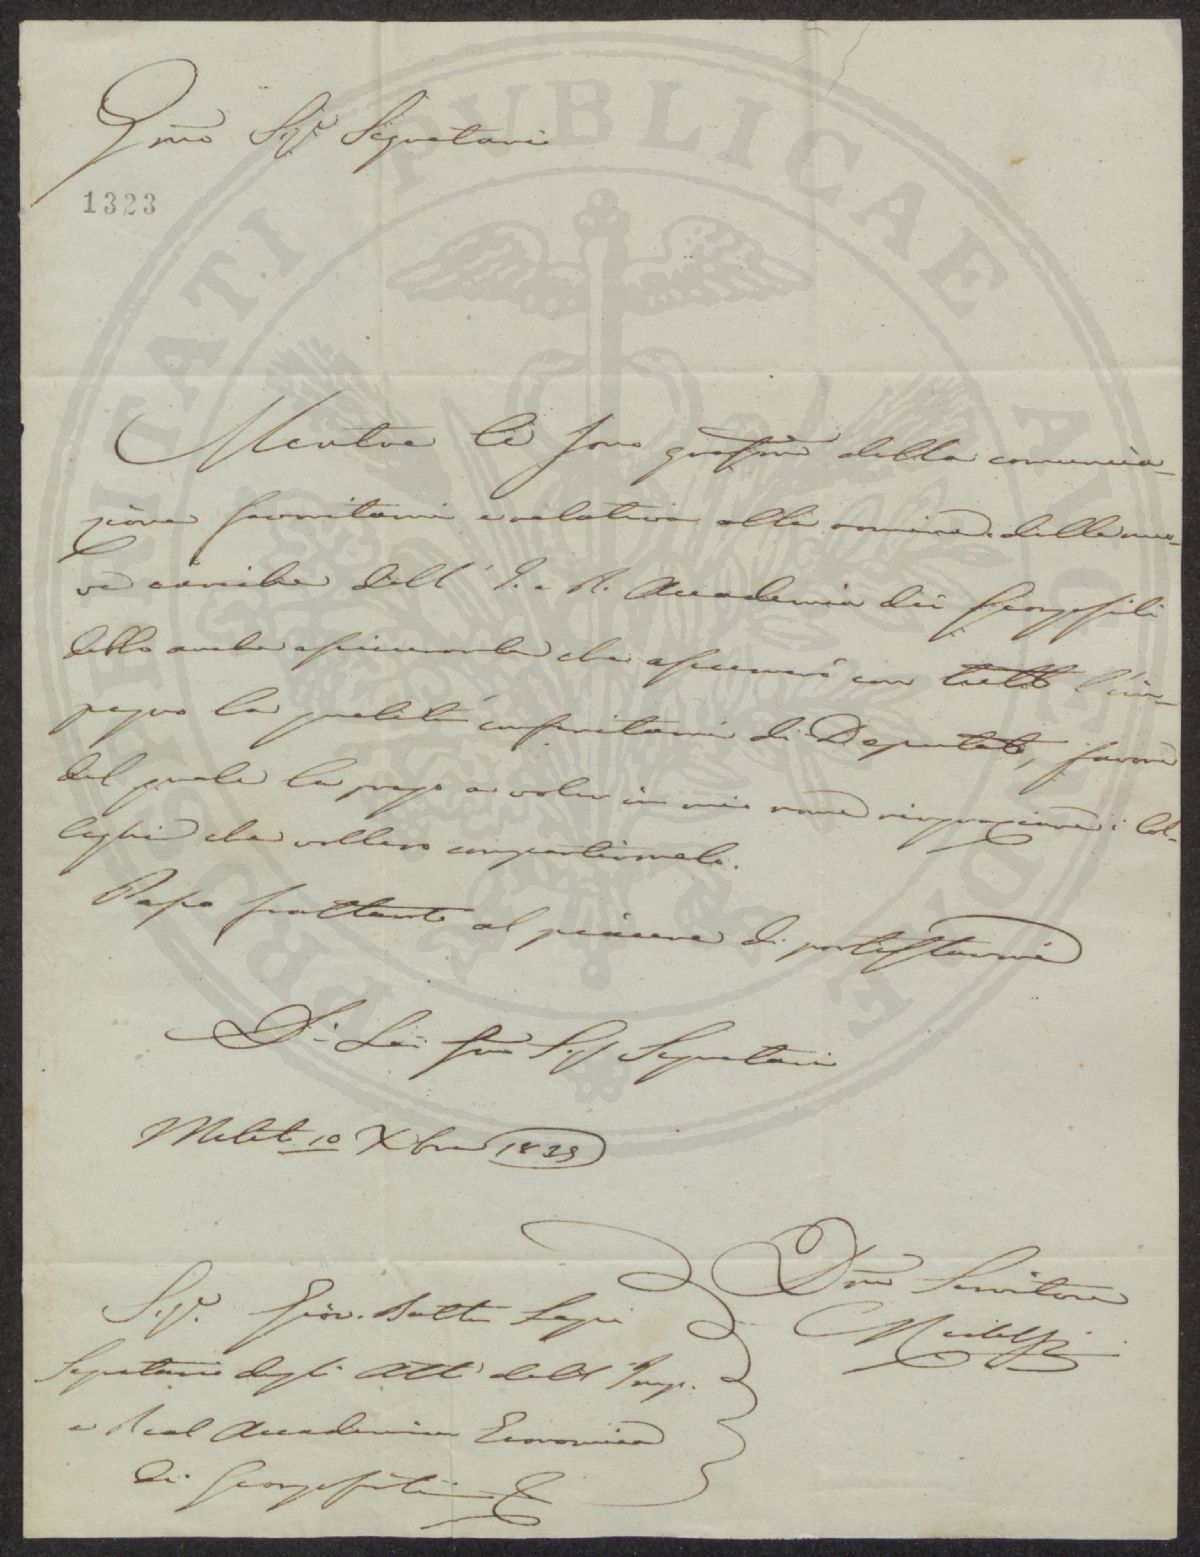 Ymo Sigr Segretario
1323
Mentre le sono gratmo della comunica-
zione favoritami e relativa alle nomine delle nuo-
ve cariche dell' I. e R. Accademia dei Georgofili
debbo anche assicurarla che assumerò con tutto l'im-
pegno la qualità conferitami di Deputato, favore
del quale la prego a voler in mio nome ringraziare i Col-
leghi che vollero compartirmelo.
Passo frattanto al piacere di protestarmi
Di Lei Sigr Segretario
10 Xbre 1839
Dmo Servitore
Sigr. Giov. Batta Lapi
Segretario degli Atti dell' Imp.
e Real Accademia Economica
dei Georgofili
PROSPERITATI PUBLICAE AUGENDAE